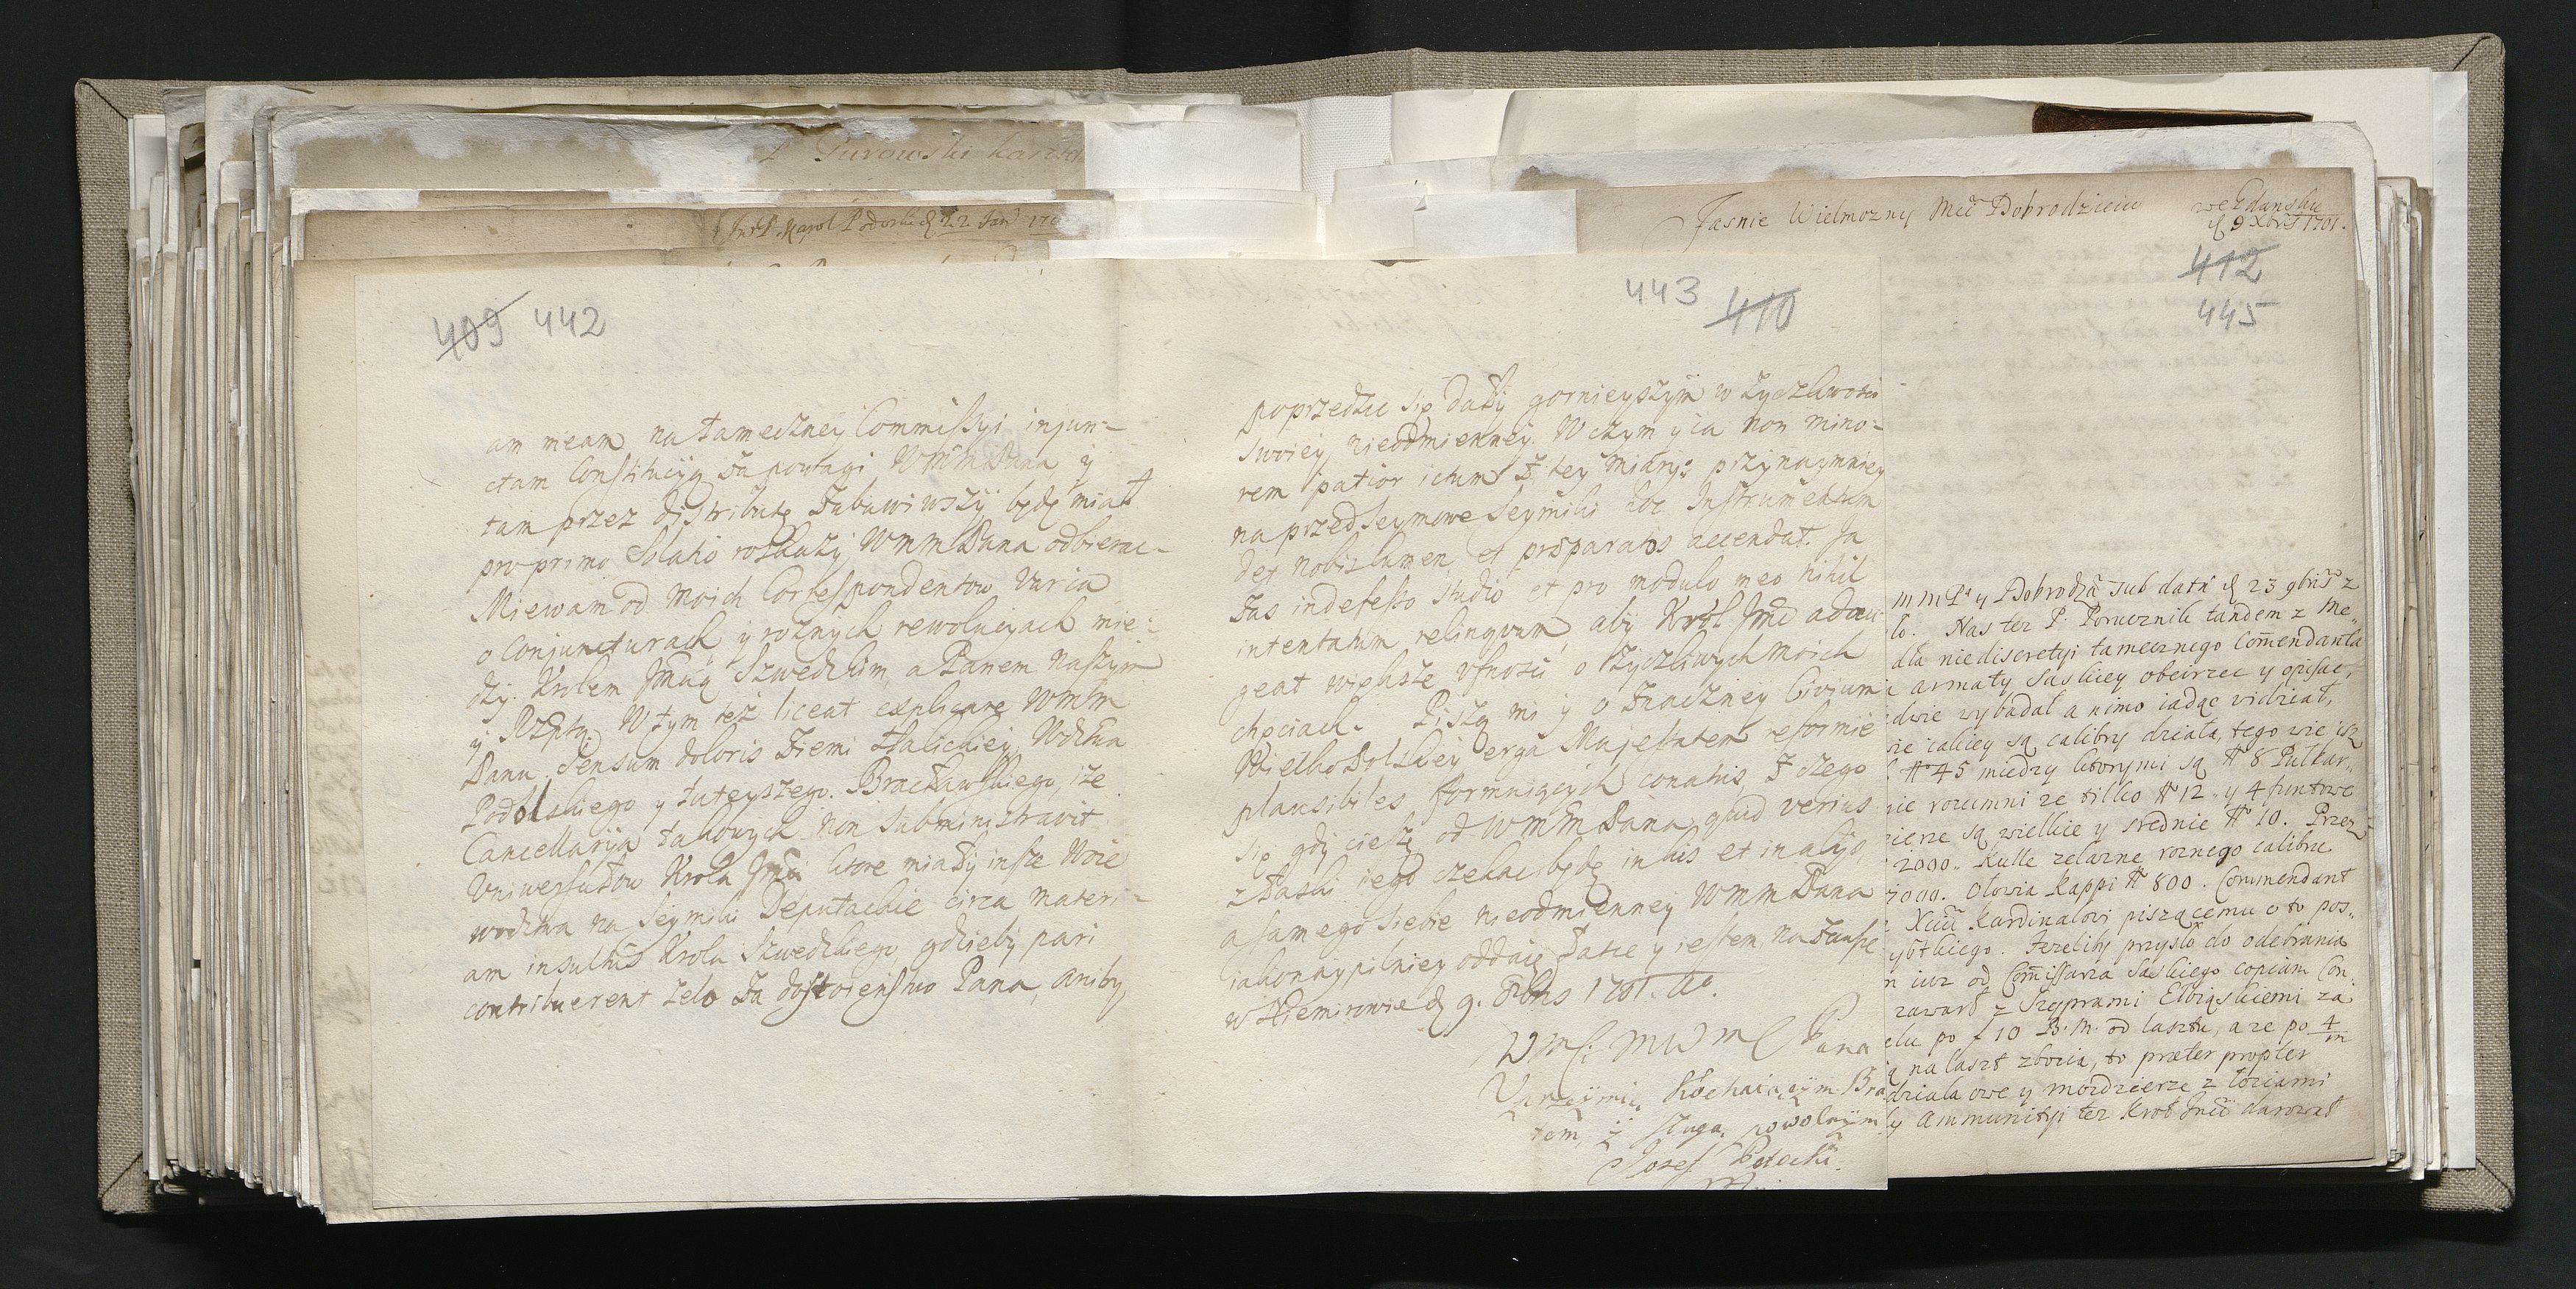 P Turowski
JmP. Karol Podoski d 22 Jan 170
409 442
am meam na tameczney Commissyi injun-
ctam Constitucyą za powagi WMMPana y
tam przez distributę zabawiwszy będę miał
pro primo solatio rozkazy WMMPana odbierac-
Miewam od moich Correspondentow varia
o Conjuncturach y roznych rewolucyach mie-
dzy Krolem Jmcią Szwedzkim, a Panem naszym
y Rzptą. W tym też liceat explicare WMM
Panu sensum doloris Ziemi Halickiey, Wdztwa
Podolskiego y tuteyszego Bracławskiego, ize
Cancellarya takowych non subministravit
Vniwersałow Krola Jmci ktore miały insze Woie
wodztwa na Seymiki Deputackie circa materi-
am insultus Krola Szwedzkiego, gdzieby pari
contribuerent zelo za dostoienstwo Pana, aniby
443 410
poprzedzic się dały gornieyszym w życzliwosci
swoiey nieodmienney. W czym y ia non mino-
rem patior ictum z tey miary: przynaymniey
na przedseymowe Seymiki hoc Instrumentum
det nobis lumen, et præparatos accendat. Ja
zas indefesso studio et pro modulo meo nihil
intentatum relinquam, aby Krol Jmć adau-
geat większe ufnosci o życzliwych moich
chęciach. Piszą mi y o znaczney Civium
Wielko Polskiey erga Majestatem reformie
plausibiles formuiących conatus, z czego
się gdy cieszę od WMMPana quid verius
z łaski iego czekac będę in his et in alijs,
a samego siebie nieodmienney WMMPana
iakonaypilniey oddaię łasce y iestem na zawsze
w Niemirowie d 9. Xbris 1701. Ao.
WMsci MWMC Pana
Uprzeymię Kochaiącym Bra
tem, y sługa powolnym
Josef Potocki
Jasnie Wielmozny Mci Dobrodzieiu
we Gdansku
d 9 Xbris 1701.
412
445
MMPa y Dobrodza sub dato d 23 9bris z
ło. Nas tez P. Porucznik tandem z Me-
dla niediscretyi tamecznego Comendanta
armaty Saskiey obeirzec y opisac,
dwie wybadał a nimo iadąc vidział,
ie całiey są calibry działa, tego wie isz
# 45 miedzy ktorymi są # 8 Pułkar-
nie rozumni ze tilko # 12 y 4 funtowe
zierze są wielkie y srednie # 10. Przez
2000. Kulle zelazne roznego calibru
7000. Ołowia kappi # 800. Commendant
Xciu Kardinałowi piszącemu o to pos-
ystkiego. Jezeliby przysło do odebrania
m iuz od Comissarza Saskiego copiam Con
zawarł z Szyprami Elbiąskiemi za
elu po f 10 B. M. od lasztu, a ze po 4/m
ą na laszt zboza, to præter propter
działa owe y mozdzierze z łozami
y Ammunityi tez Krol Jmci darował